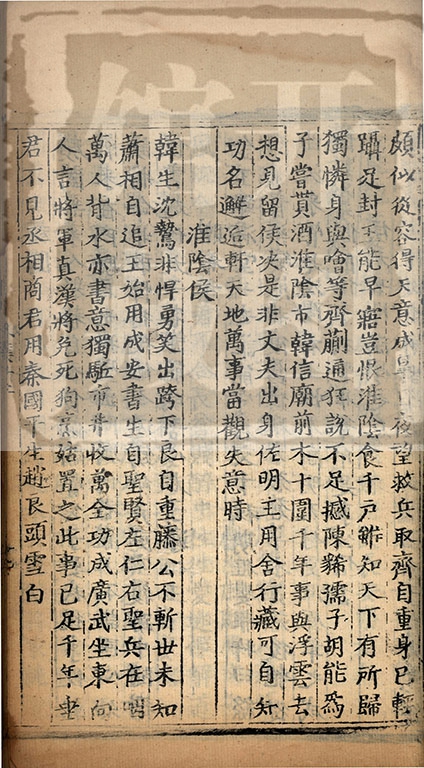 頗似從容得天意成皋一夜望救兵取齊自重身已輕
躡足封王能早寤豈恨淮陰食千戶雖知天下有所歸
獨憐身與噲等齊蒯通狂說不足撼陳豨孺子胡能爲
子嘗貰酒淮陰市韓信廟前木十圍千年事與浮雲去
想見留侯决是非丈夫出身佐明主用舍行藏可自知
功名邂逅軒天地萬事當觀失意時
淮陰侯
韓生沈鷙非悍勇笑出跨下良自重滕公不斬世未知
蕭相自追王始用成安書生自聖賢左仁右聖兵在咽
萬人背水亦書意獨驅市井收萬全功成廣武坐東向
人言將軍真漢將兔死狗烹姑置之此事已足千年
君不見丞相商君用秦國平生趙良頭雪白